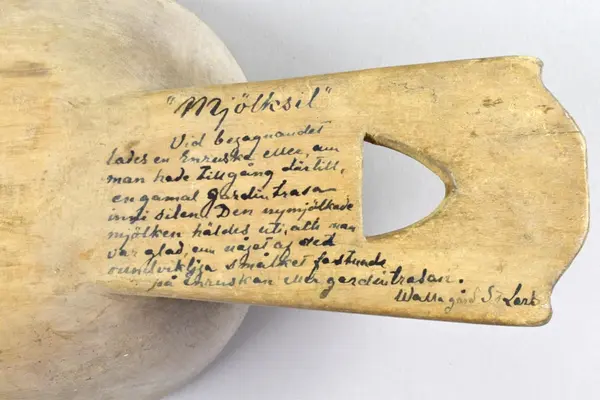 "Mjölksil"
Vid begagnandet
lades en Enruska eller, om
man hade tillgång därtill,
en gamal gardintrasa
inni silen. Den nymjölkade
mjölken häldes uti, och man
var glad, om något af det
oundvikliga småludet fastnade
på Enruskan eller gardintrasan.
Walla gård St